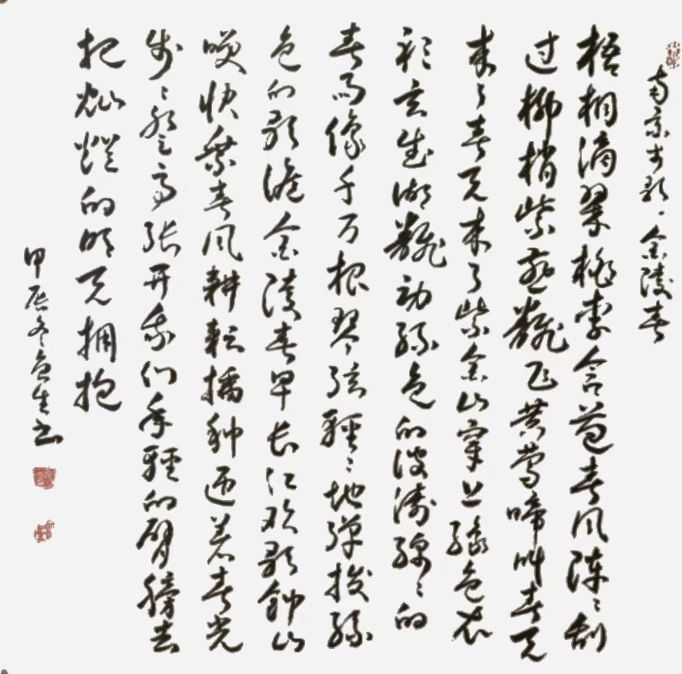 南京 金陵春
梧桐滴翠桃李含苞春风阵阵刮
过柳梢紫燕翻飞黄莺啼叫春天
来了春天来了紫金山穿上绿色衣
衫玄武湖翻动绿色的波涛绵绵的
春雨像千万根琴弦轻轻地弹拨绿
色的歌谣金陵春早长江欢歌钟山
笑快乘春风耕耘播种迎着春光
步步登高张开我们年轻的臂膀去
把灿烂的明天拥抱
甲辰冬 生书